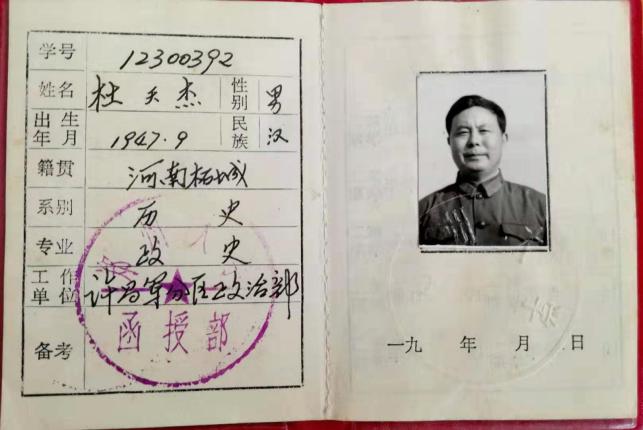 学号 12300392
姓名 杜天杰 性别 男
出生年月 1947.9 民族 汉
籍贯 河南柘城
系别 历史
专业 政史
工作单位 许昌军分区政治部
备考
函授部
一九 年 月 日